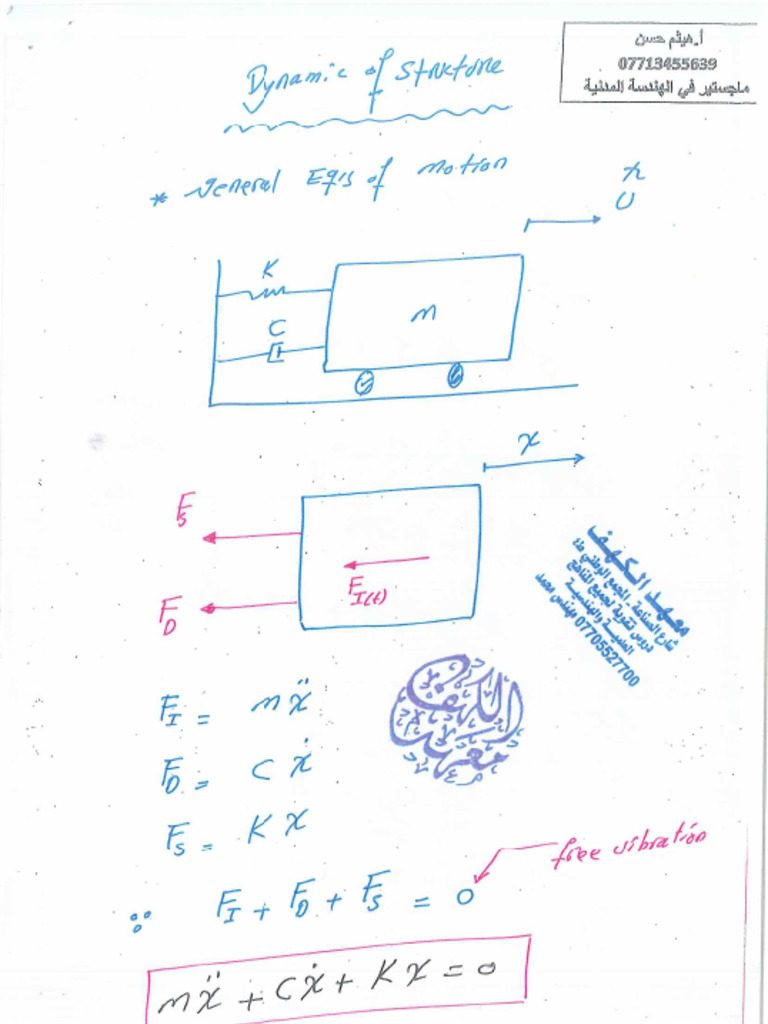 أ.هيثم حسن
07713455639
ماجستير في الهندسة المدنية
Dynamic of Structure
* General Eq's of motion
x
U
K
C
m
x
F_S
F_I(t)
F_D
معهد الكهف
شارع الصناعة - المجمع الوطني ط٤
دروس تقوية لجميع المناهج
العلمية والهندسية
07705527700 مهندس محمد
معهد الكهف
F_I = mẍ
F_D = Cẋ
F_S = Kx
free vibration
∴ F_I + F_D + F_S = 0
mẍ + Cẋ + Kx = 0